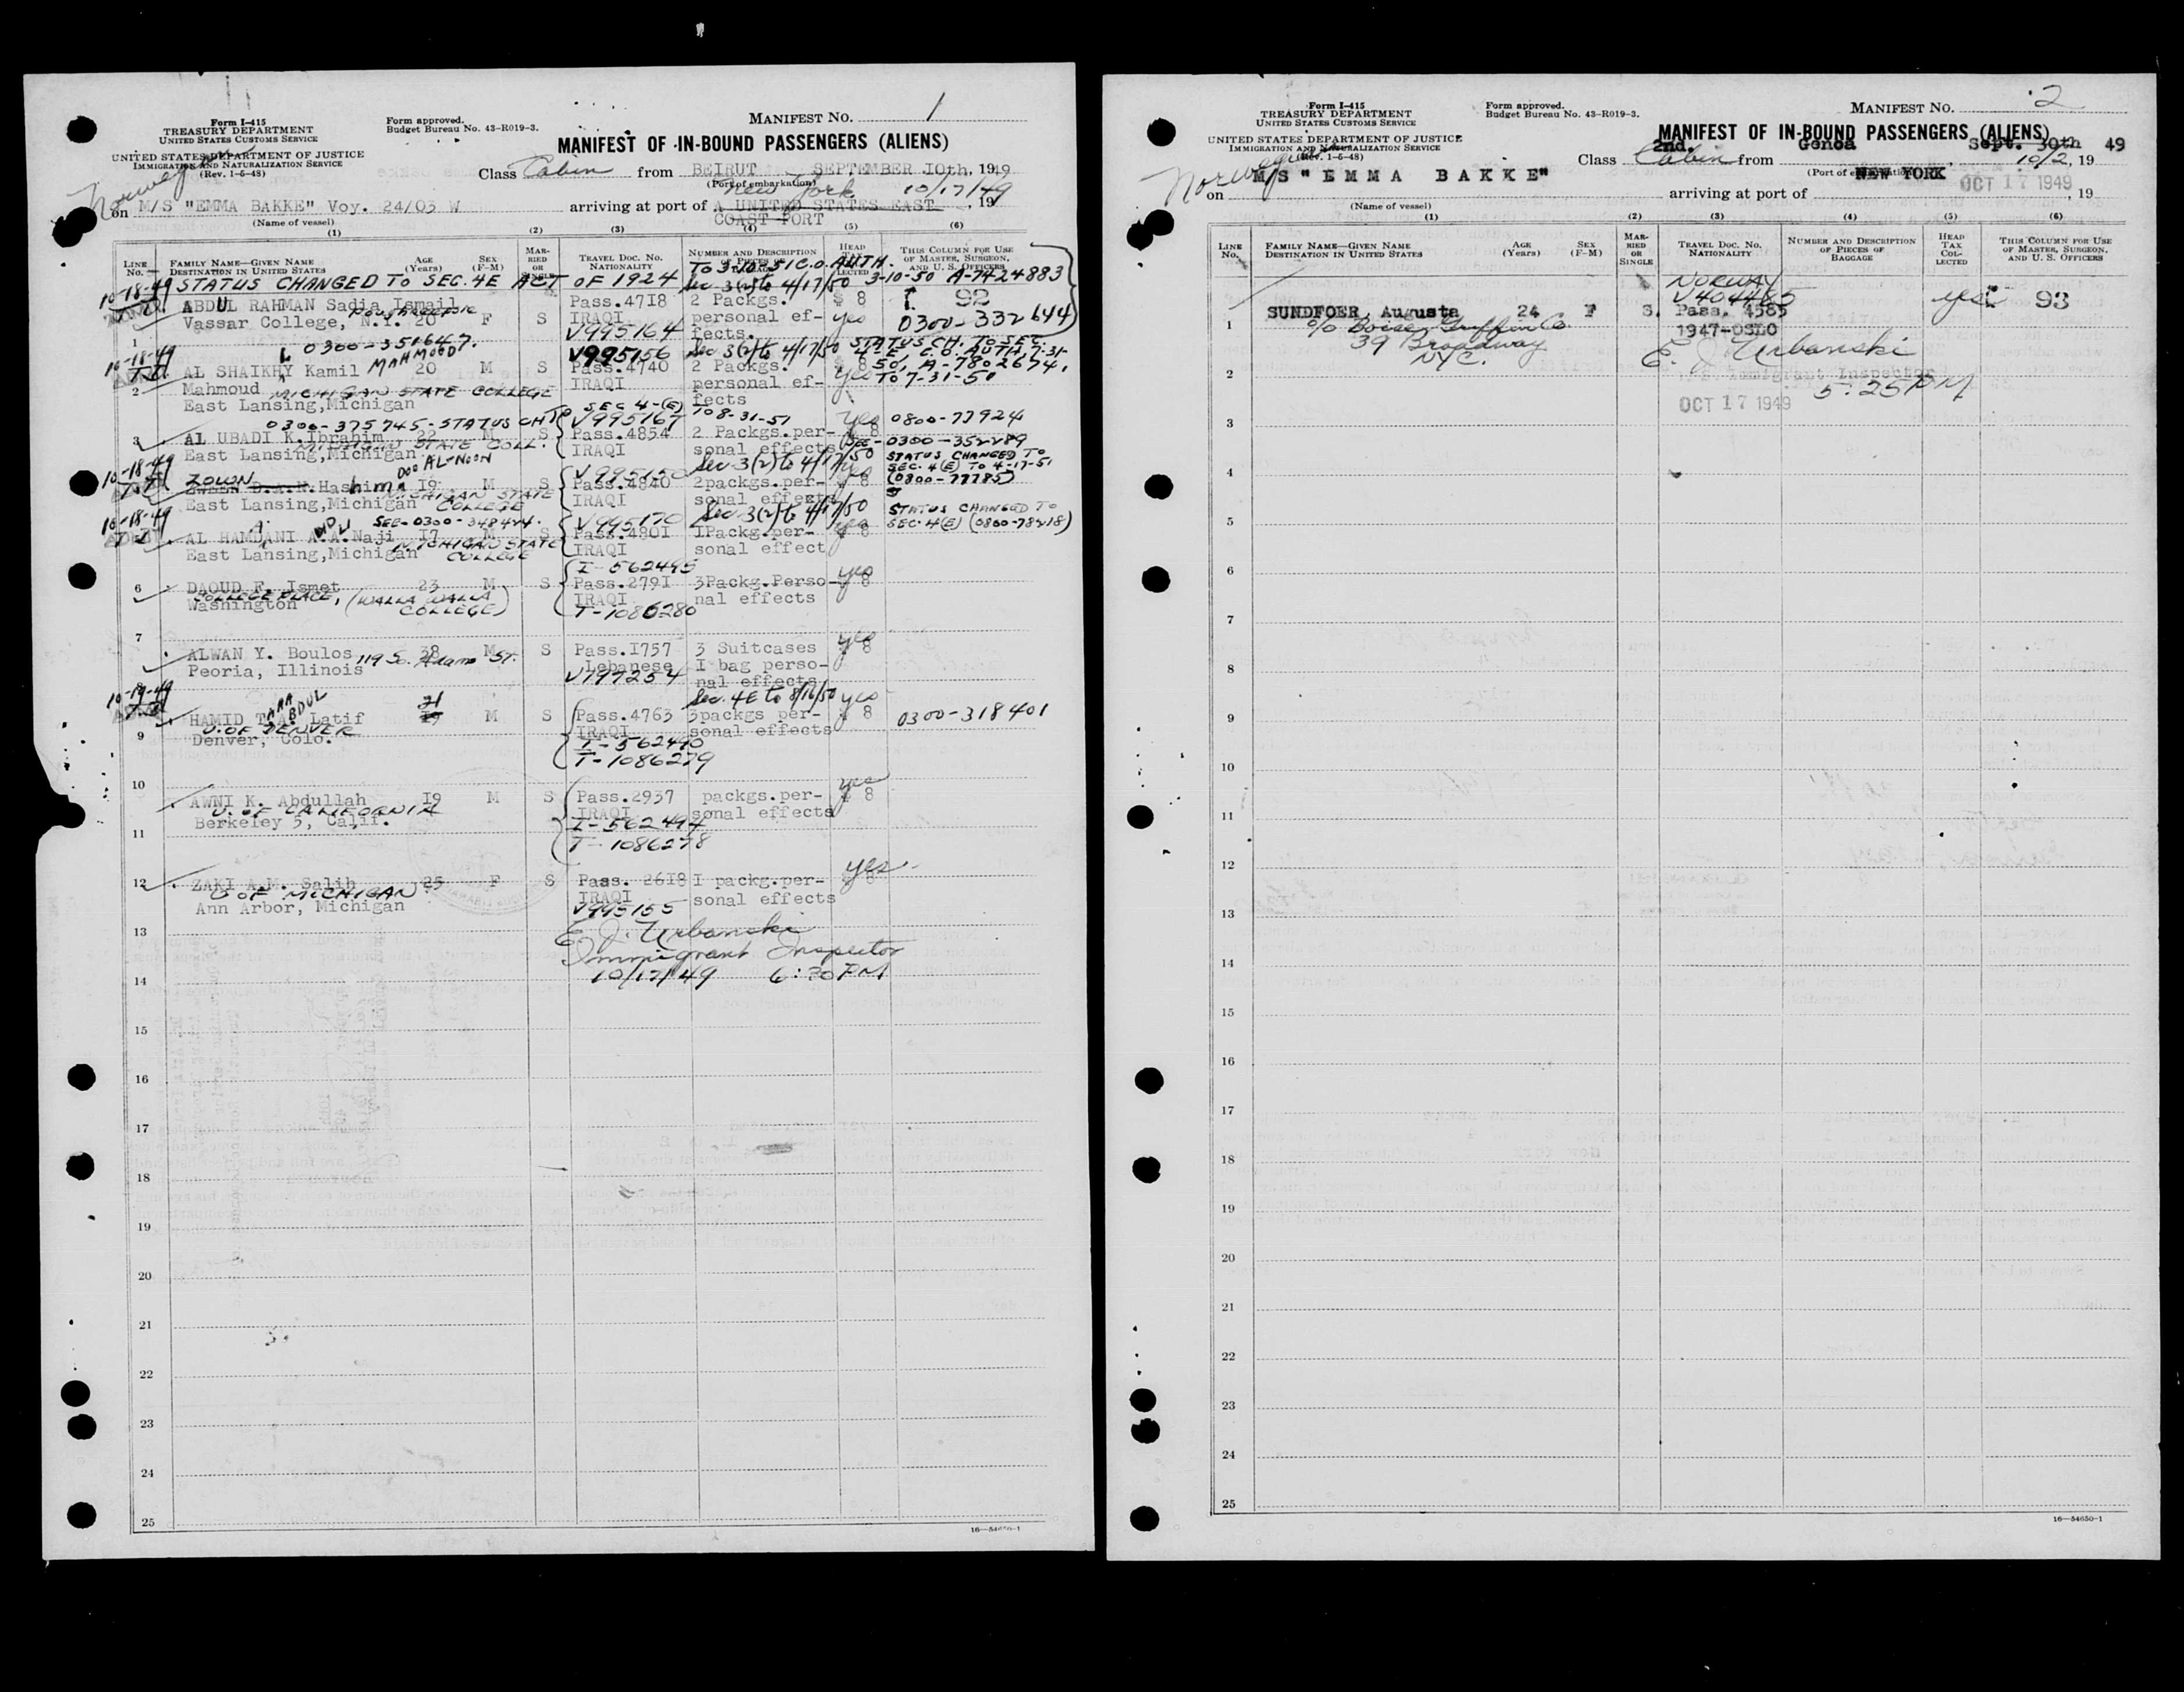 Form I-415
TREASURY DEPARTMENT
UNITED STATES CUSTOMS SERVICE
UNITED STATES DEPARTMENT OF JUSTICE
IMMIGRATION AND NATURALIZATION SERVICE
(Rev. 1-6-48)
Form approved.
Budget Bureau No. 43-R019-3.
MANIFEST NO. 1
MANIFEST OF IN-BOUND PASSENGERS (ALIENS)
Class Cabin from BEIRUT SEPTEMBER IOth, 1949
(Port of embarkation)
Norwegian
on M/S "EMMA BAKKE" Voy. 24/03 W
(Name of vessel)
New York 10/17/49
arriving at port of A UNITED STATES EAST, 19
COAST PORT
(1) (2) (3) (4) (5) (6)
LINE No.
FAMILY NAME—GIVEN NAME
DESTINATION IN UNITED STATES
AGE (Years)
SEX (F-M)
MARRIED OR SINGLE
TRAVEL DOC. NO.
NATIONALITY
NUMBER AND DESCRIPTION OF PIECES OF
HEAD TAX COLLECTED
THIS COLUMN FOR USE OF MASTER, SURGEON, AND U. S. OFFICERS
TO 3-10-51 C.O. AUTH.
10-18-49 STATUS CHANGED TO SEC. 4E ACT OF 1924 Sec 3(2) to 4/17/50 3-10-50 A-7424883
ABDUL RAHMAN Sadia Ismail Pass.47I8 2 Packgs. $ 8 92
Vassar College, N.Y. 20 F S IRAQI personal ef- yes 0300-332644
POUGHKEEPSIE
1 V995164 fects.
0300-351647.
10-18-49 V995156 Sec 3(2) to 4/17/50 STATUS CH. TO SEC. 4-E, C.O. AUTH, 7-31-50, A-7802674, TO 7-31-50
AL SHAIKHY Kamil MAHMOOD 20 M S Pass.4740 2 Packgs. $ 8 yes
2 Mahmoud MICHIGAN STATE COLLEGE IRAQI personal ef-
East Lansing,Michigan fects
0300-375745-STATUS CH TO SEC 4-(E) TO 8-31-51
V995167 yes 0800-77924
3 AL UBADI K.Ibrahim 22 M S Pass.4854 2 Packgs.per- $ 8
MICHIGAN STATE COLL.
East Lansing,Michigan IRAQI sonal effects SEE-0300-352289
10-18-49 DOO AL-NOON V995150 Sec. 3(2) to 4/17/50 STATUS CHANGED TO SEC. 4(E) TO 4-17-51
ZOWN Hashima 19 M S Pass.4840 2packgs.per- yes $ 8 (0800-77785)
East Lansing,Michigan MICHIGAN STATE COLLEGE IRAQI sonal effects
10-18-49 SEE-0300-348424. V995170 Sec. 3(2) to 4/17/50 STATUS CHANGED TO
AL HAMDANI A.A.Naji I7 M S Pass.480I IPackg.per- yes $ 8 SEC. 4(E) (0800-78218)
East Lansing,Michigan MICHIGAN STATE COLLEGE IRAQI sonal effect
I-562495
6 DAOUD F. Ismet 23 M S Pass.279I 3Packg.Perso- yes $ 8
COLLEGE PLACE, (WALLA WALLA COLLEGE)
Washington IRAQI nal effects
T-1086280
7
ALWAN Y. Boulos 38 M S Pass.I757 3 Suitcases yes $ 8
119 So. Adams St.
Peoria, Illinois Lebanese I bag perso-
8 V797254 nal effects
10-19-49 Sec. 4E to 8/16/50
HAMID T.A. Latif ABDUL 21 M S Pass.4763 3packgs per- yes $ 8 0300-318401
U. OF DENVER
9 Denver, Colo. IRAQI sonal effects
I-562490
T-1086279
10
AWNI K. Abdullah I9 M S Pass.2937 packgs.per- yes $ 8
U. OF CALIFORNIA
Berkeley 5, Calif. IRAQI sonal effects
11 I-562494
T-1086278
12 ZAKI A.M. Salih 25 F S Pass. 26I8 I packg.per- yes $ 8
U OF MICHIGAN
Ann Arbor, Michigan IRAQI sonal effects
V995155
13 E. J. Urbanski
Immigrant Inspector
14 10/17/49 6:30 PM
15
16
17
18
19
20
21
22
23
24
25
16—54650-1
Form I-415
TREASURY DEPARTMENT
UNITED STATES CUSTOMS SERVICE
UNITED STATES DEPARTMENT OF JUSTICE
IMMIGRATION AND NATURALIZATION SERVICE
(Rev. 1-6-48)
Form approved.
Budget Bureau No. 43-R019-3.
MANIFEST NO. 2
MANIFEST OF IN-BOUND PASSENGERS (ALIENS)
2nd. Genoa Sept. 30th 49
Class Cabin from 10/2, 19
(Port of embarkation)
Norwegian
on M/S "EMMA BAKKE"
(Name of vessel)
NEW YORK OCT 17 1949
arriving at port of , 19
(1) (2) (3) (4) (5) (6)
LINE No.
FAMILY NAME—GIVEN NAME
DESTINATION IN UNITED STATES
AGE (Years)
SEX (F-M)
MARRIED OR SINGLE
TRAVEL DOC. NO.
NATIONALITY
NUMBER AND DESCRIPTION OF PIECES OF BAGGAGE
HEAD TAX COLLECTED
THIS COLUMN FOR USE OF MASTER, SURGEON, AND U. S. OFFICERS
NORWAY
V404485
1 SUNDFOER, Augusta 24 F S. Pass. 4585 yes 93
c/o Boise Griffin Co. 1947-OSLO
39 Broadway E. J. Urbanski
N.Y.C.
2 Immigrant Inspector
5:25 PM
OCT 17 1949
3
4
5
6
7
8
9
10
11
12
13
14
15
16
17
18
19
20
21
22
23
24
25
16—54650-1